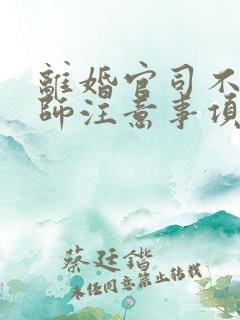 離婚官司不
師注意事項
蔡廷鍇
未经同意禁止转载